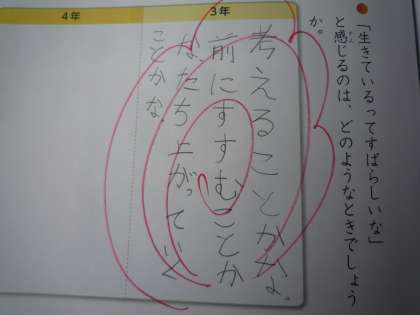 「生きているってすばらしいな」
と感じるのは、どのようなときでしょう
か。
3年
考えることかな。
前にすすむことか
な、たち上がっていく
ことかな。
4年